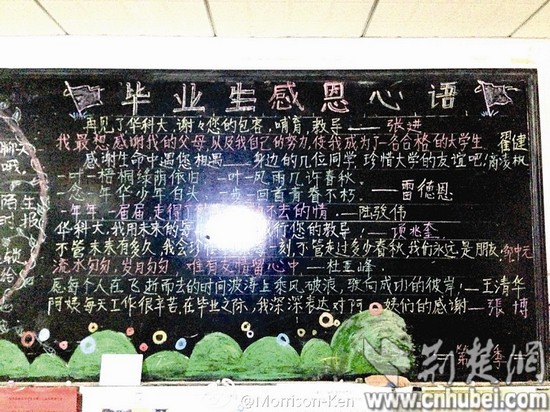 毕业生感恩心语
再见了华科大,谢々您的包容,哺育,教导——张进
我最想感谢我的父母以及我自己的努力,使我成为了一名合格的大学生 翟健
感谢生命中遇您相遇 身边的几位同学,珍惜大学的友谊吧!
一叶一梧桐矮荫依旧 一叶一风雨几许春秋
一念一年华少年白头 一步一回首青春不朽.——雷德恩
一年年,一届届,走得了 不去的情.—陆骏伟
华科大,我用未来的每 行您的教导!——项兆奎
不管未来有多久,我会珍 一刻,不管走过多少春秋,我们永远是朋友.
流水匆匆,岁月匆匆 唯有友情留心中—杜孟峰
愿每个人在飞逝而去的时间波涛上乘风破浪,驶向成功的彼岸.—王清华
阿姨每天工作很辛苦,在毕业之际,我深深表达对阿姨们的感谢—張博
聊天
哦
陌生
时报
给
第 季
荆楚网
www.cnhubei.com
@Morrison-Ken